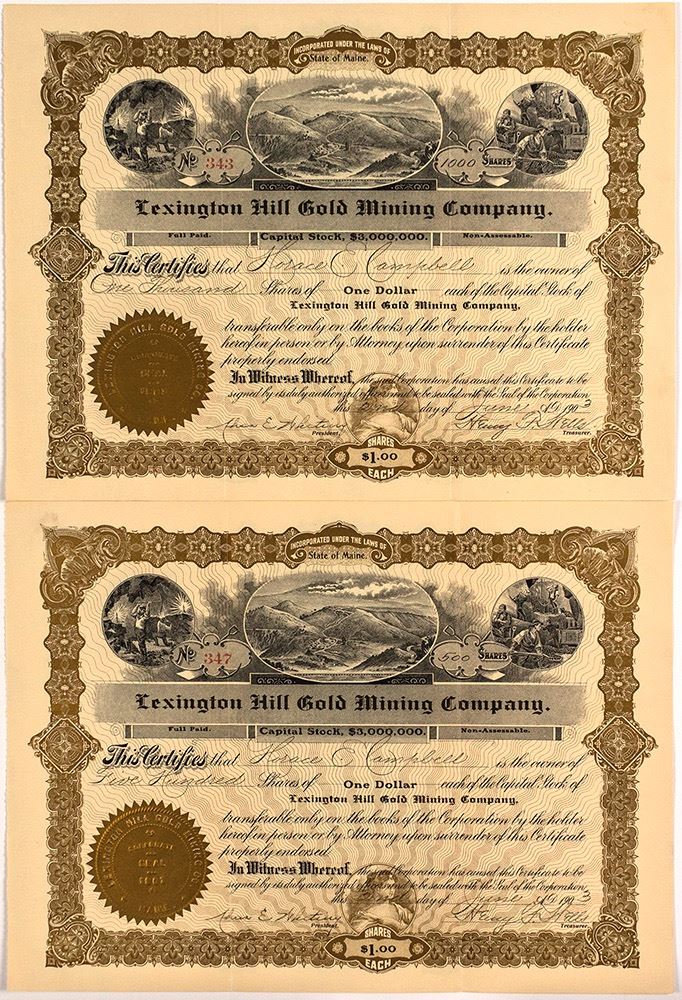 INCORPORATED UNDER THE LAWS OF
State of Maine.
No 343
1000 SHARES
Lexington Hill Gold Mining Company.
Full Paid. Capital Stock, $3,000,000. Non-Assessable.
This Certifies that Horace C Campbell is the owner of
One Thousand Shares of One Dollar each of the Capital Stock of
Lexington Hill Gold Mining Company,
transferable only on the books of the Corporation by the holder
hereof in person or by Attorney upon surrender of this Certificate
properly endorsed
In Witness Whereof, the said Corporation has caused this Certificate to be
signed by its duly authorized officers and to be sealed with the Seal of the Corporation
this day of June A.D. 1903
President.
Treasurer.
LEXINGTON HILL GOLD MINING CO.
CORPORATE
SEAL
SHARES
$1.00
EACH
INCORPORATED UNDER THE LAWS OF
State of Maine.
No 347
500 SHARES
Lexington Hill Gold Mining Company.
Full Paid. Capital Stock, $3,000,000. Non-Assessable.
This Certifies that Horace C Campbell is the owner of
Five Hundred Shares of One Dollar each of the Capital Stock of
Lexington Hill Gold Mining Company,
transferable only on the books of the Corporation by the holder
hereof in person or by Attorney upon surrender of this Certificate
properly endorsed
In Witness Whereof, the said Corporation has caused this Certificate to be
signed by its duly authorized officers and to be sealed with the Seal of the Corporation
this day of June A.D. 1903
President.
Treasurer.
LEXINGTON HILL GOLD MINING CO.
CORPORATE
SEAL
SHARES
$1.00
EACH